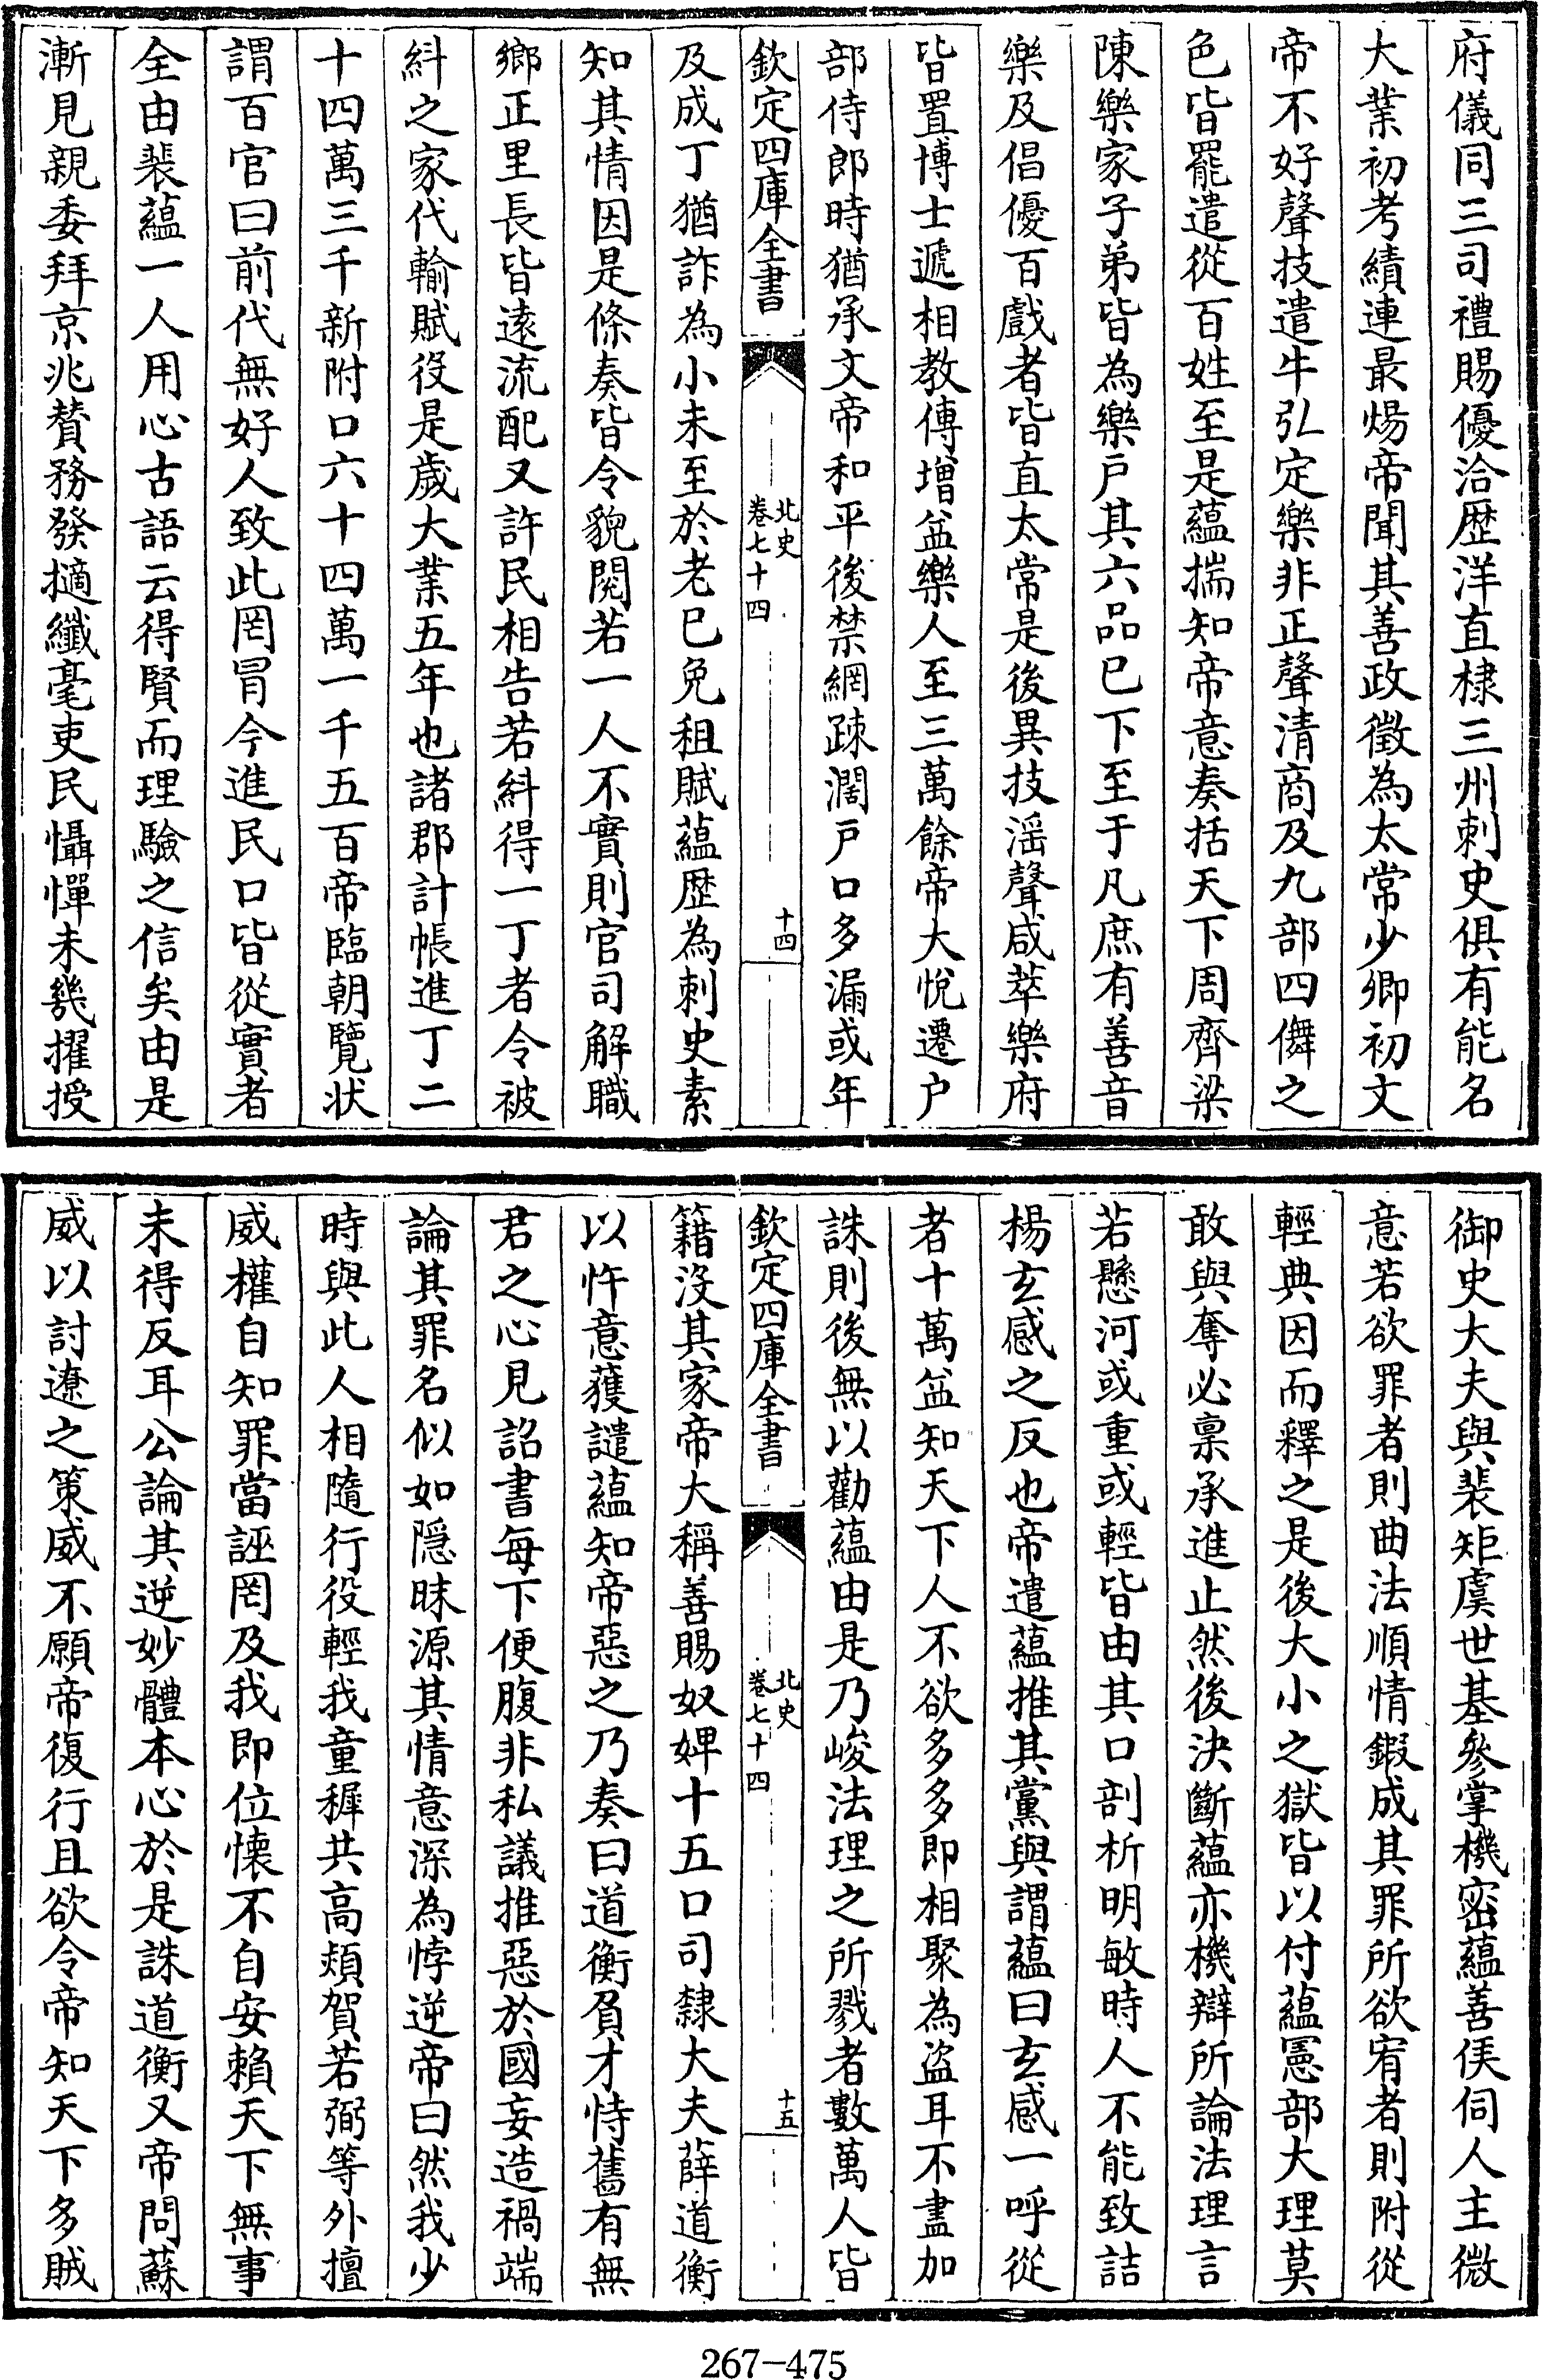 府儀同三司禮賜優洽歴洋直棣三州刺史俱有能名
大業初考績連最煬帝聞其善政徵為太常少卿初文
帝不好聲技遣牛弘定樂非正聲清商及九部四儛之
色皆罷遣從百姓至是蘊揣知帝意奏括天下周齊梁
陳樂家子弟皆為樂戶其六品已下至于凡庶有善音
樂及倡優百戲者皆直太常是後異技淫聲咸萃樂府
皆置博士遞相教傳增益樂人至三萬餘帝大悅遷户
部侍郎時猶承文帝和平後禁網疎濶戶口多漏或年
欽定四庫全書
北史
卷七十四
十四
及成丁猶詐為小未至於老已免租賦蘊歴為刺史素
知其情因是條奏皆令貌閱若一人不實則官司解職
鄉正里長皆逺流配又許民相告若糾得一丁者令被
糾之家代輸賦役是歲大業五年也諸郡計帳進丁二
十四萬三千新附口六十四萬一千五百帝臨朝覽状
謂百官曰前代無好人致此罔冒今進民口皆從實者
全由裴蘊一人用心古語云得賢而理驗之信矣由是
漸見親委拜京兆贊務發擿纖毫吏民懾憚未幾擢授
御史大夫與裴矩虞世基參掌機密蘊善𠊱伺人主微
意若欲罪者則曲法順情鍜成其罪所欲宥者則附從
輕典因而釋之是後大小之獄皆以付蘊憲部大理莫
敢與奪必稟承進止然後決斷蘊亦機辯所論法理言
若懸河或重或輕皆由其口剖析明敏時人不能致詰
楊玄感之反也帝遣蘊推其黨與謂蘊曰玄感一呼從
者十萬益知天下人不欲多多即相聚為盜耳不盡加
誅則後無以勸蘊由是乃峻法理之所戮者數萬人皆
欽定四庫全書
北史
卷七十四
十五
籍沒其家帝大稱善賜奴婢十五口司隸大夫薛道衡
以忤意獲譴蘊知帝惡之乃奏曰道衡負才恃舊有無
君之心見詔書每下便腹非私議推惡於國妄造禍端
論其罪名似如隠昧源其情意深為悖逆帝曰然我少
時與此人相隨行役輕我童稺共高熲賀若弼等外擅
威權自知罪當誣罔及我即位懐不自安賴天下無事
未得反耳公論其逆妙體本心於是誅道衡又帝問蘇
威以討遼之策威不願帝復行且欲令帝知天下多賊
267-475